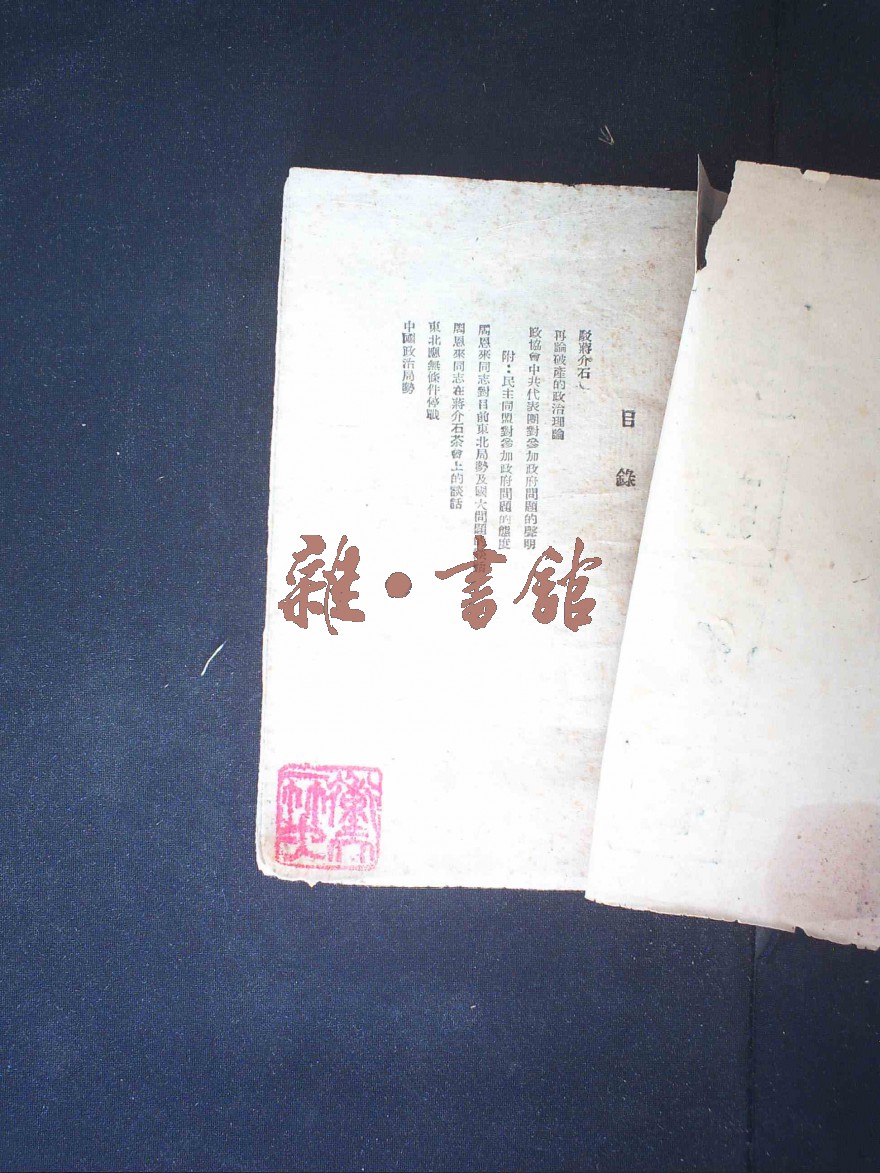 目錄
駁蔣介石
再論破產的政治理論
政協會中共代表團對參加政府問題的聲明
附：民主同盟對參加政府問題的態度
周恩來同志對目前東北局勢及國大問題
周恩來同志在蔣介石茶會上的談話
東北應無條件停戰
中國政治局勢
雜·書館